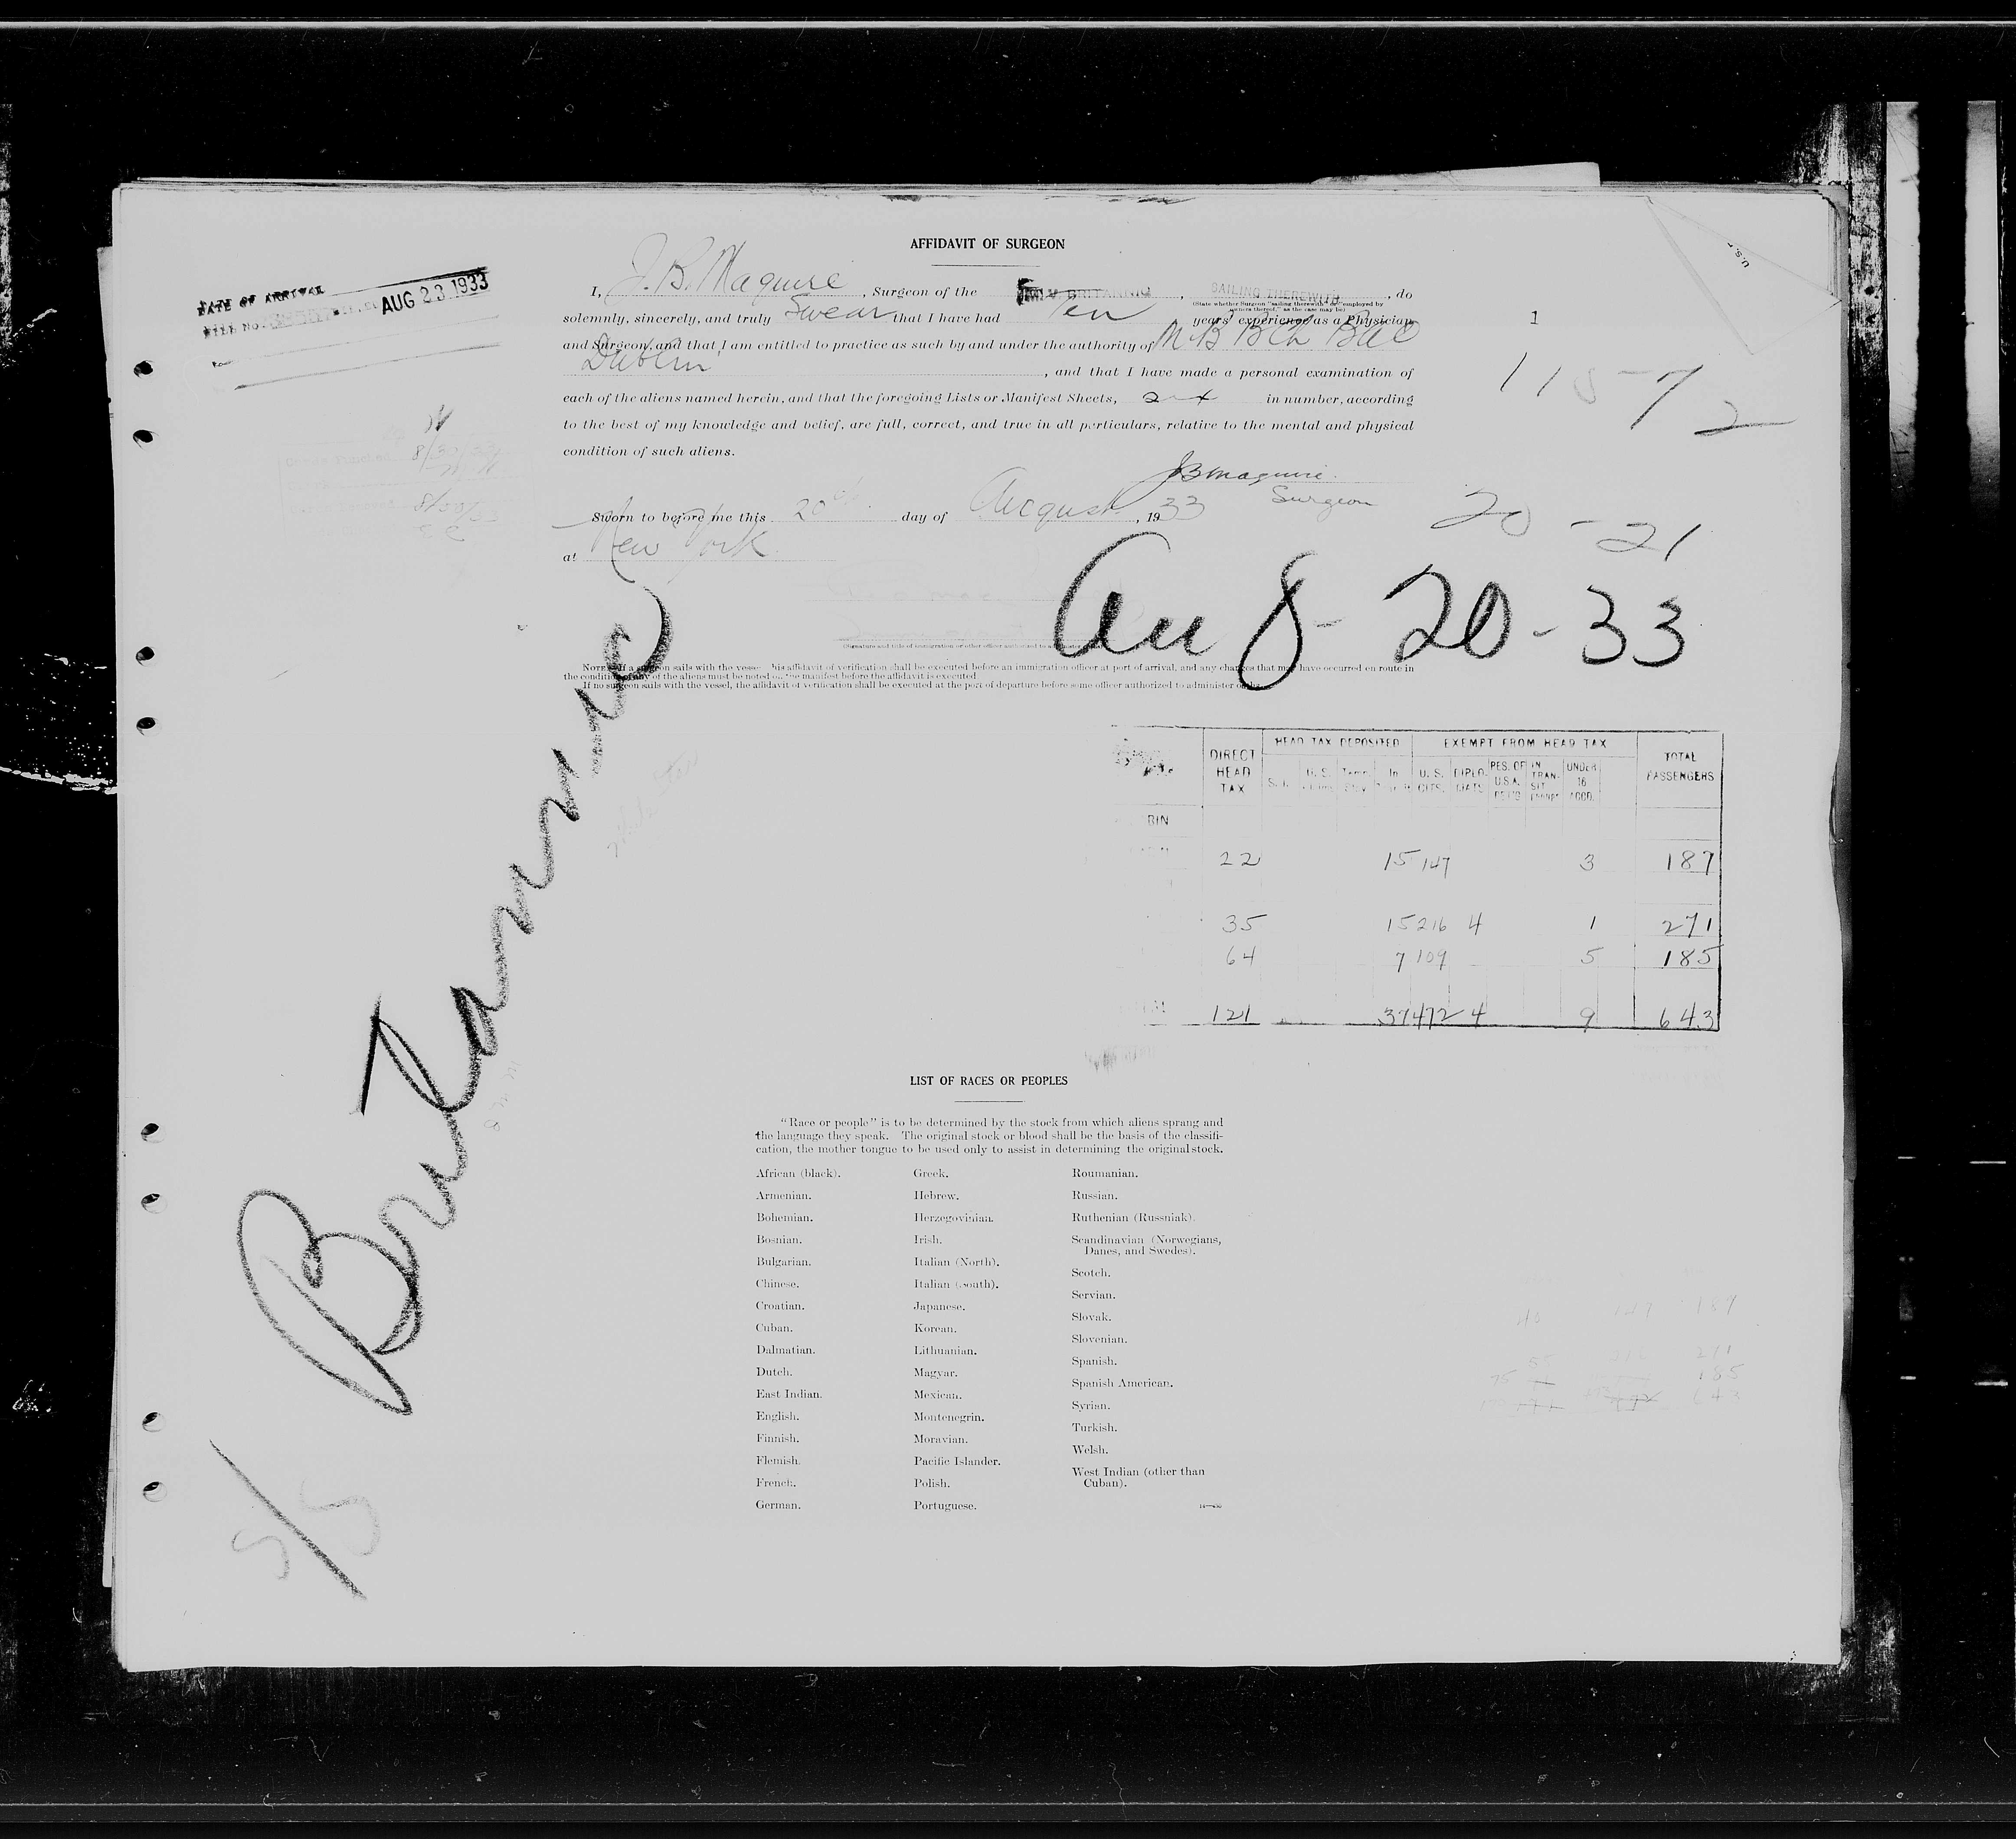 AFFIDAVIT OF SURGEON
DATE OF ARRIVAL
AUG 23 1933
I, J. B. Maguire, Surgeon of the M.V. BRITANNIC, SAILING THEREWITH, do
(State whether Surgeon "sailing therewith" or "employed by
owners thereof," as the case may be)
solemnly, sincerely, and truly Swear that I have had Ten years' experience as a Physician
and Surgeon, and that I am entitled to practice as such by and under the authority of M B B Ch BAO
Dublin, and that I have made a personal examination of
each of the aliens named herein, and that the foregoing Lists or Manifest Sheets, in number, according
to the best of my knowledge and belief, are full, correct, and true in all particulars, relative to the mental and physical
condition of such aliens.
1
JB Maguire.
Surgeon
Sworn to before me this 20th day of August, 1933
at New York
20-21
8-20-33
Britannic
NOTE.—If a surgeon sails with the vessel this affidavit of verification shall be executed before an immigration officer at port of arrival, and any changes that may have occurred en route in
the condition of any of the aliens must be noted on the manifest before the affidavit is executed
If no surgeon sails with the vessel, the affidavit of verification shall be executed at the port of departure before some officer authorized to administer
DIRECT HEAD TAX
HEAD TAX DEPOSITED
EXEMPT FROM HEAD TAX
TOTAL PASSENGERS
S.I.
U.S. CITS.
DIPLO-MATS
RES. OF U.S.A. RET'G
IN TRAN-SIT
UNDER 16 ACCD.
22 15 147 3 187
35 15 216 4 1 271
64 7 109 5 185
121 37 472 4 9 643
LIST OF RACES OR PEOPLES
"Race or people" is to be determined by the stock from which aliens sprang and
the language they speak. The original stock or blood shall be the basis of the classifi-
cation, the mother tongue to be used only to assist in determining the original stock.
African (black).
Armenian.
Bohemian.
Bosnian.
Bulgarian.
Chinese.
Croatian.
Cuban.
Dalmatian.
Dutch.
East Indian.
English.
Finnish.
Flemish.
French.
German.
Greek.
Hebrew.
Herzegovinian.
Irish.
Italian (North).
Italian (South).
Japanese.
Korean.
Lithuanian.
Magyar.
Mexican.
Montenegrin.
Moravian.
Pacific Islander.
Polish.
Portuguese.
Roumanian.
Russian.
Ruthenian (Russniak).
Scandinavian (Norwegians,
Danes, and Swedes).
Scotch.
Servian.
Slovak.
Slovenian.
Spanish.
Spanish American.
Syrian.
Turkish.
Welsh.
West Indian (other than
Cuban).
147 187
271
185
643